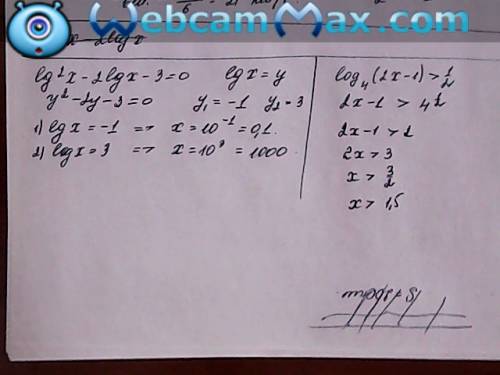 WebcamMax.com
lg²x-2lgx-3=0 lgx=y
y²-2y-3=0 y₁=-1 y₂=3
1) lgx=-1 => x=10⁻¹=0,1.
2) logx=3 => x=10³=1000
log₄(2x-1)>1/2
2x-1 > 4^1/2
2x-1>2
2x>3
x>3/2
x>1,5